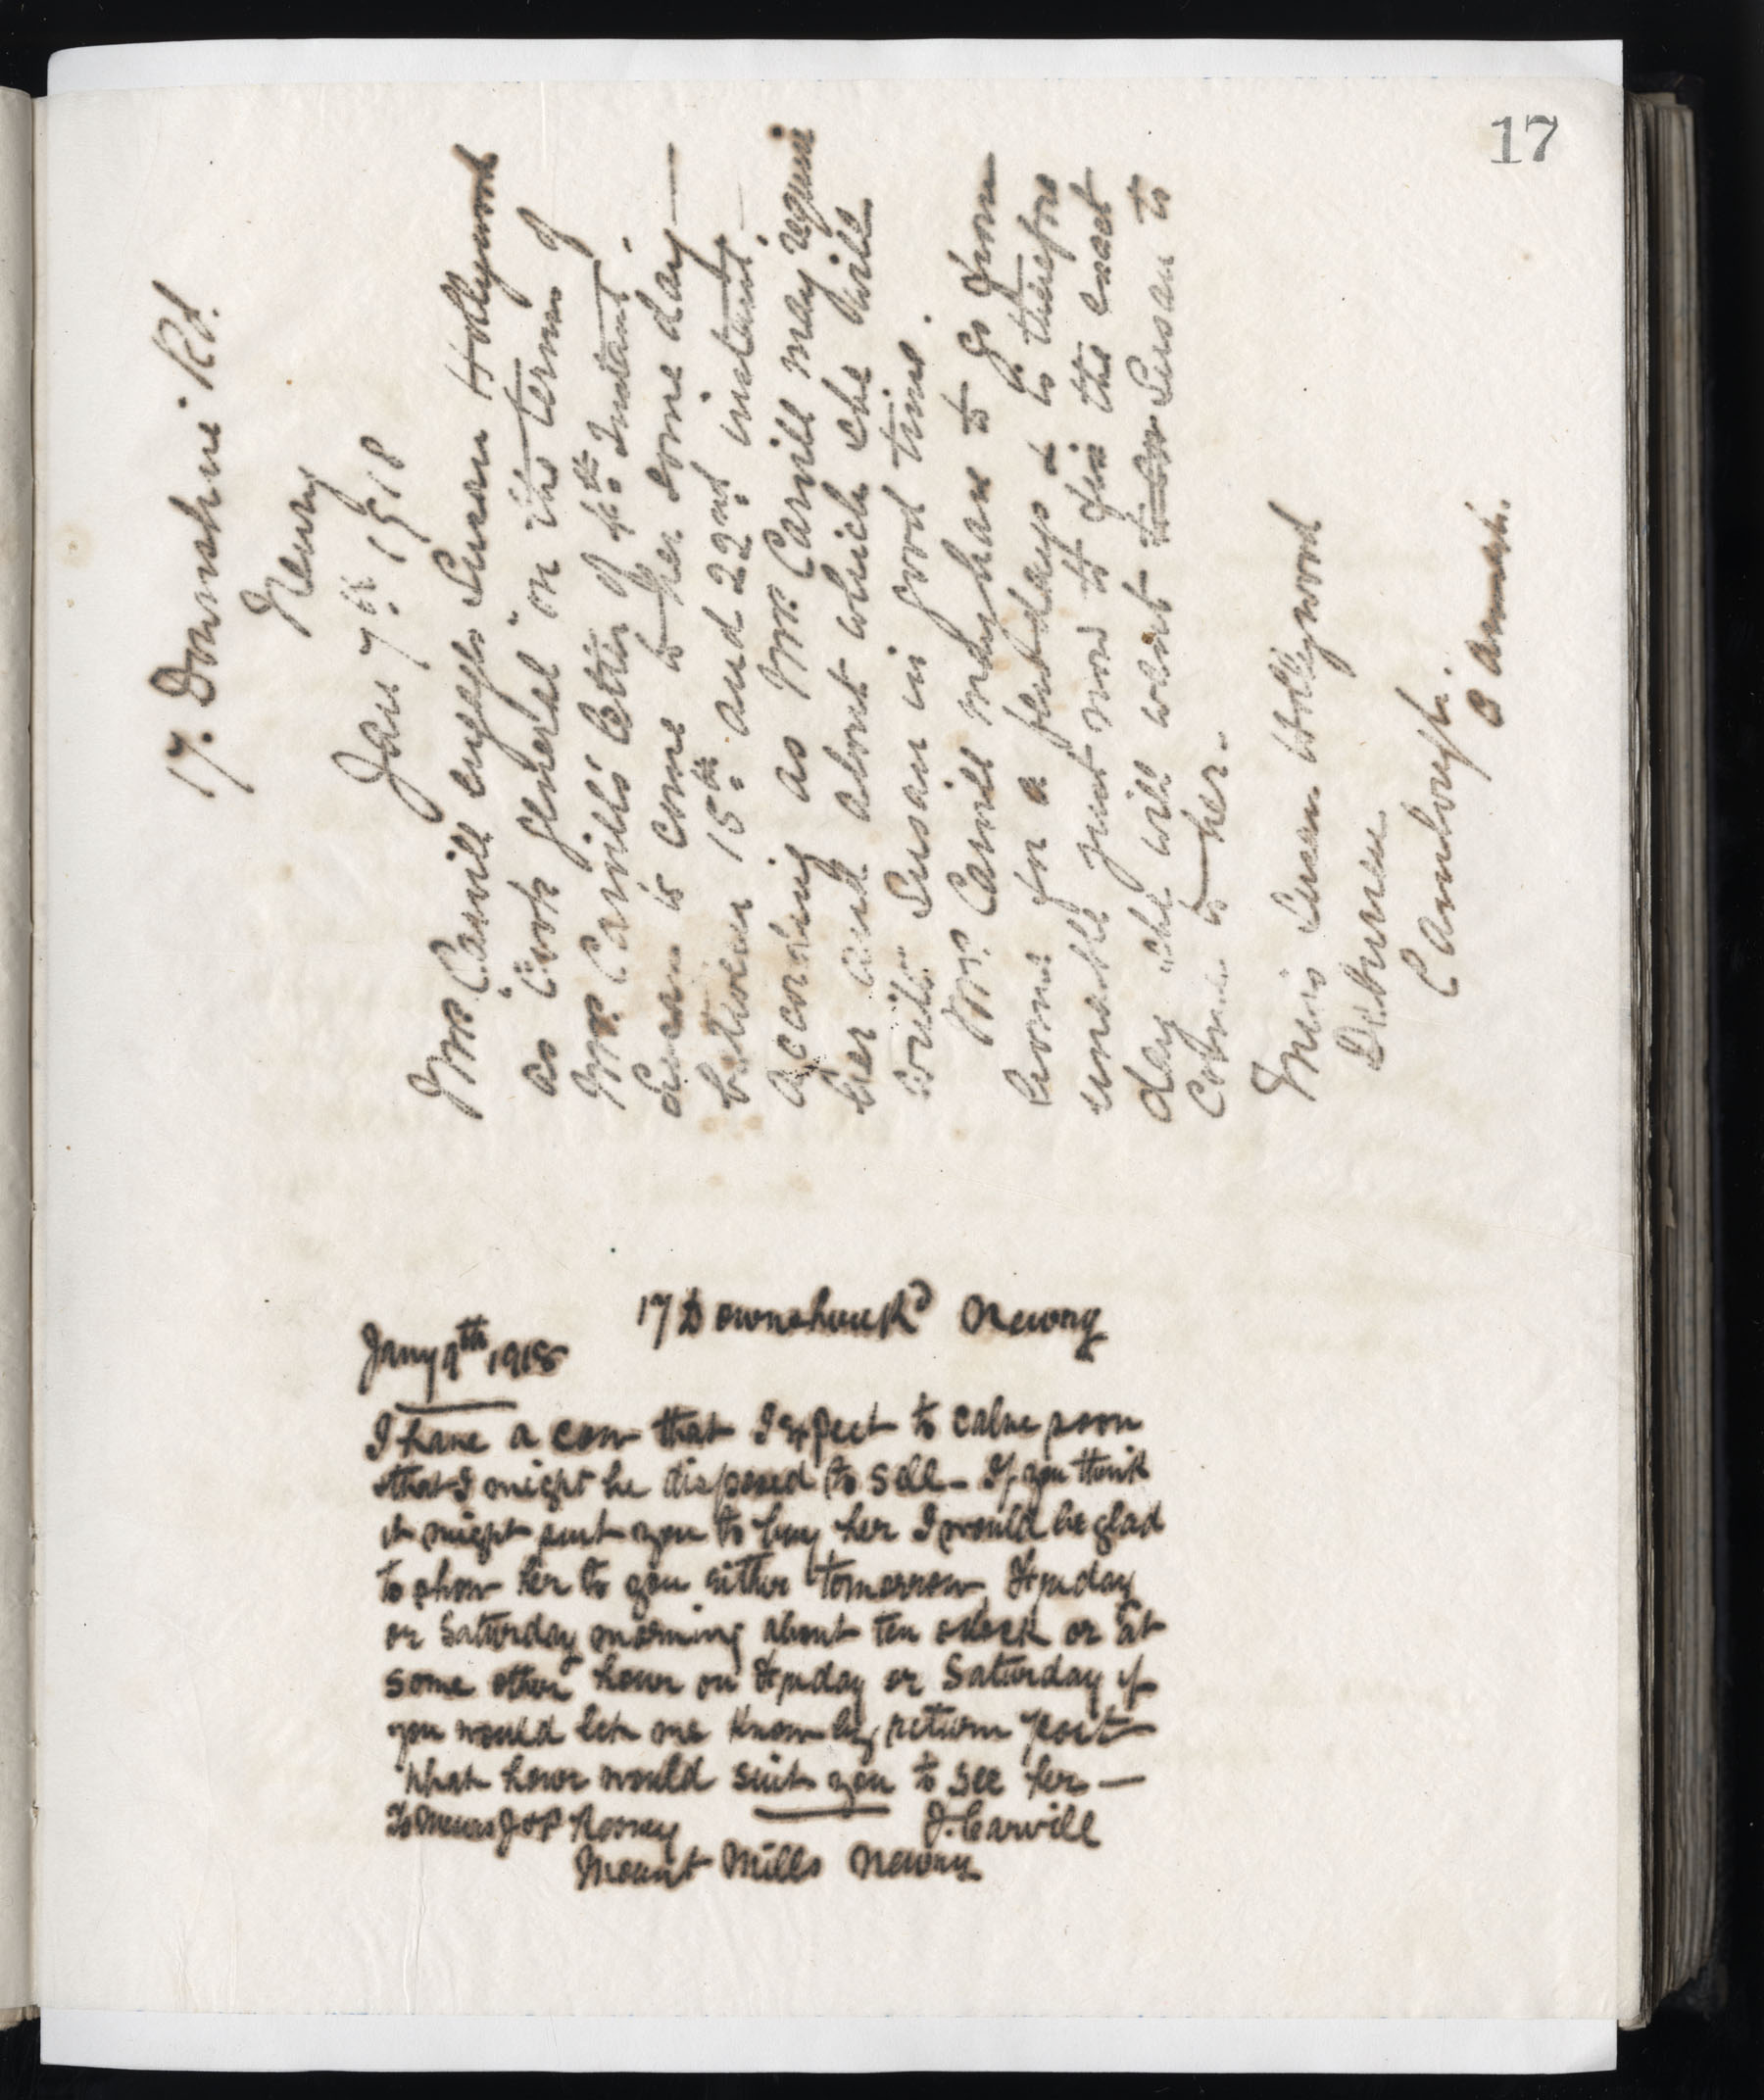 17
17. Downshire Rd.
Newry
Jan 7th 1918
Mrs. Carvill engages Susan Hollywood
as "Cook general" on the terms of
Mrs. Carvill's letter of 4th Instant.
Susan is come to her some day —
between 15th and 22nd instant. —
according as Mrs. Carvill may require
her and about which she will
write Susan in good time.
Mrs. Carvill may have to go from
home for a few days & is therefore
unable just now to fix the exact
day she will want Susan to
come to her.
Miss Susan Hollywood
Camlough.
Co Armagh.
17 Downshire Rd Newry
Jany 9th 1918
I have a cow that I expect to calve soon
that I might be disposed to sell - If you think
it might suit you to buy her I would be glad
to show her to you either tomorrow, Fryday
or Saturday morning about ten oclock or at
some other hour on Fryday or Saturday if
you would let me know by return post
what hour would suit you to see her —
To Messrs J & P
J. Carvill
Mount Mills Newry